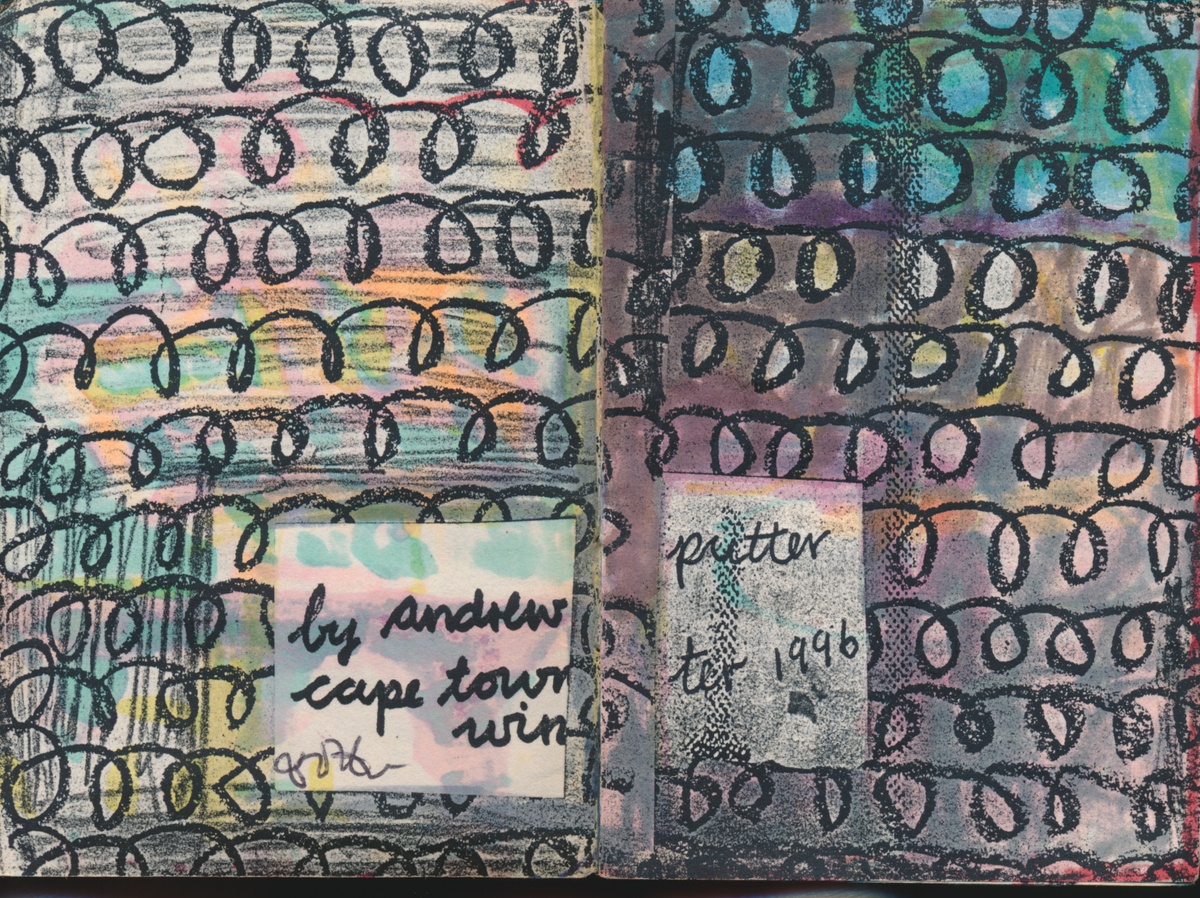 by andrew
cape town
win-
putter
ter 1996